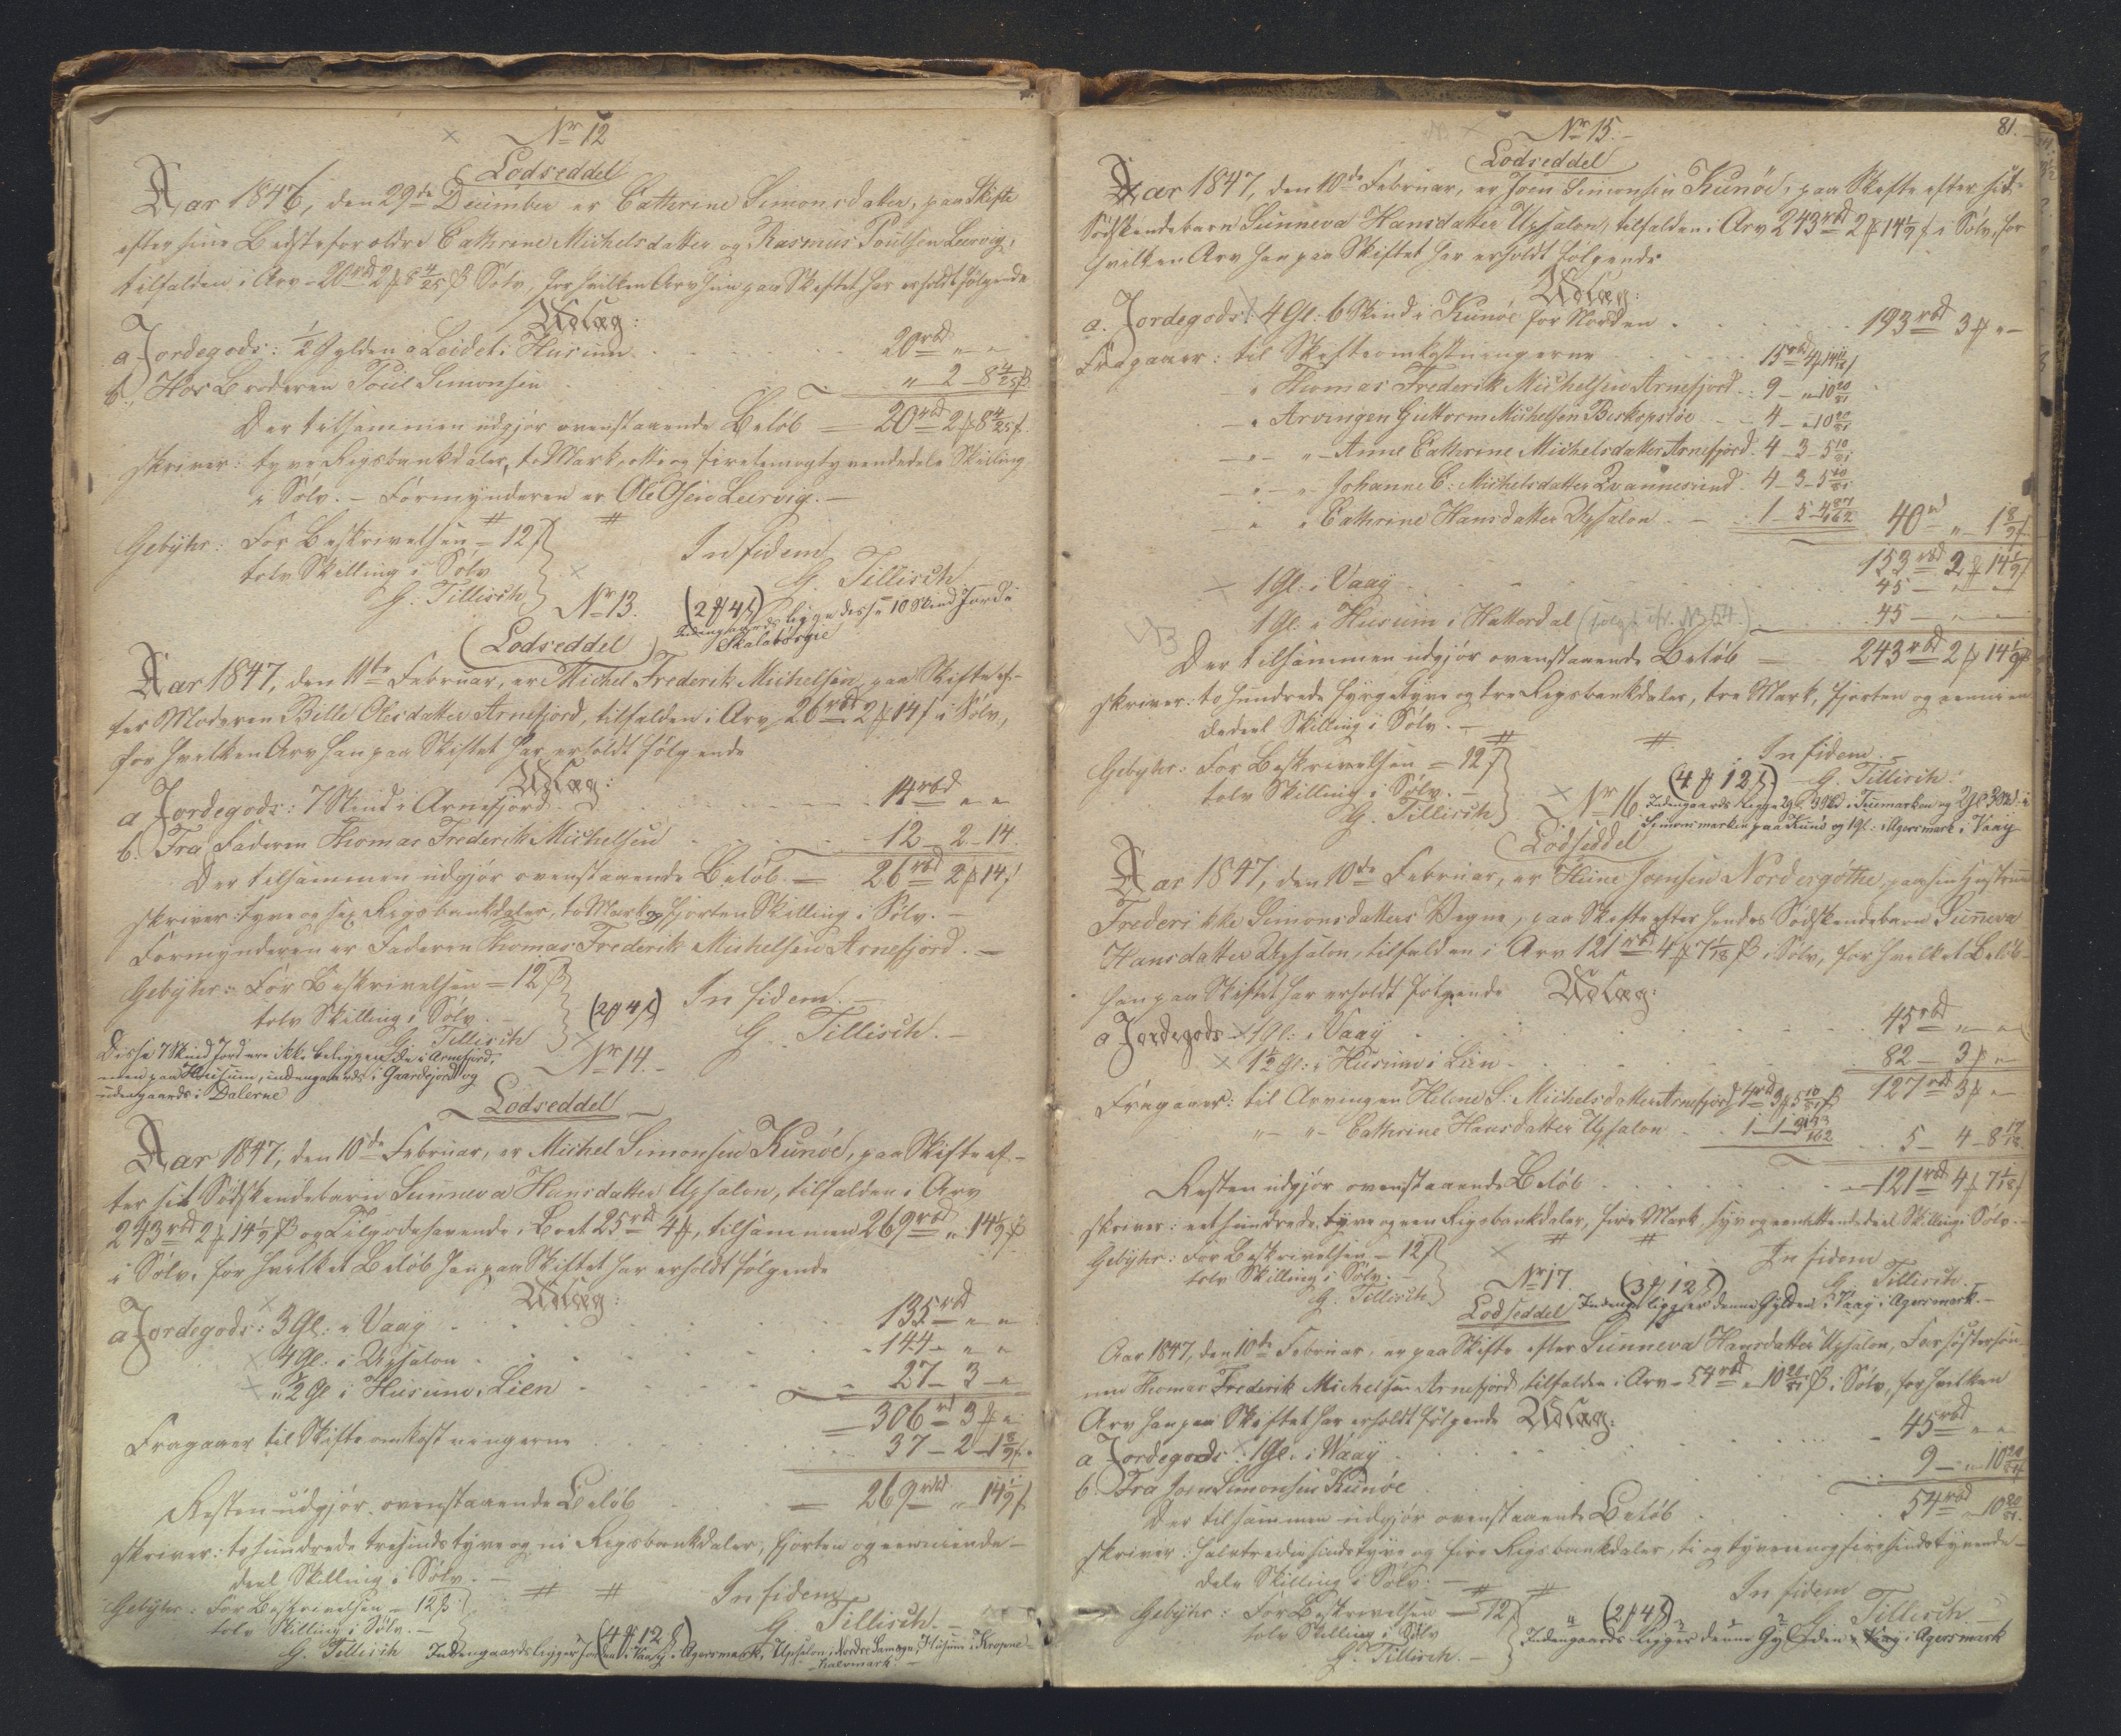 Nr 12
Lodseddel
Aar 1846, den 29de December er Catherine Simonsdatter, paa Skifte
efter sine Bedsteforældre Cathrine Michelsdatter og Rasmus Poulsen Leervig,
tilfalden i Arv 20rbd 2 ꟸ 8 4/25 ß Sølv, for hvilken Arv hun paa Skiftet har erholdt følgende
Udlæg:
a Jordegods: ½ Gylden i Husum 20rbd " "
b. Hos Broderen Poul Simonsen " 2 - 8 4/25 ß
Der tilsammen udgjør ovenstaaende Beløb = 20rbd 2 ꟸ 8 4/25 ß.
skriver: tyve Rigsbankdaler, to Mark, otte og fire femogtyvendedele Skilling
i Sølv. - Formynderen er Ole Leervig. -
Gebyhr: For Beskrivelsen = 12 ß
tolv Skilling i Sølv
G. Tillisch
In fidem
G. Tillisch
(2 ꟸ 4 ß)
Indengaards ligge disse 10 Skind Jord i
Skalabørgie
Nr 13.
Lodseddel
Aar 1847, den 11te Februar, er Michel Frederik Michelsen, paa Skifte ef-
ter Moderen Bille Olesdatter Arnefjord, tilfalden i Arv 26rbd 2 ꟸ 14 ß i Sølv,
for hvilken Arv han paa Skiftet har erholdt følgende
Udlæg:
a Jordegods: 7 Skind i Arnefjord 14rbd " "
b. Fra Faderen Thomas Frederik Michelsen 12 - 2 - 14.
Der tilsammen udgjør ovenstaaende Beløb = 26rbd 2 ꟸ 14 ß
skriver: tyve og sex Rigsbankdaler, to Mark og fjorten Skilling i Sølv. -
Formynderen er Faderen Thomas Frederik Michelsen Arnefjord. -
Gebyhr: For Beskrivelsen = 12 ß
tolv Skilling i Sølv. -
G. Tillisch
(2 ꟸ 4 ß)
In fidem. -
G. Tillisch. -
Disse 7 Skind Jord ere ikke beliggende i Arnefjord,
men paa Husum, indengaards i Gaardsjord og
udengaards i Dalerne
Nr 14. -
Lodseddel
Aar 1847, den 10de Februar, er Michel Simonsen Kunøe, paa Skifte ef-
ter sit Sødskendebarn Sunneva Hansdatter Upsalon, tilfalden i Arv
243rbd 2 ꟸ 14 1/9 ß og Tilgodehavende i Boet 25rd 4 ꟸ, tilsammen 269rbd " 14 1/9 ß
i Sølv, for hvilket Beløb han paa Skiftet har erholdt følgende
Udlæg:
a Jordegods: 3 Gl: i Vaag 135rbd " "
4 Gl: i Upsalon 144 - " "
" ½ Gl i Husum i Lien 27 - 3 - "
306rd 3 ꟸ "
Fragaaer til Skifteomkostningerne 37 - 2 - 1 8/9 ß.
Resten udgjør ovenstaaende Beløb = 269rbd " 14 1/9 ß
skriver: to hundrede tresindstyve og ni Rigsbankdaler, fjorten og een niende-
deel Skilling i Sølv. -
Gebyhr: For Beskrivelsen - 12 ß
tolv Skilling i Sølv. -
G. Tillisch
In fidem
G. Tillisch. -
(4 ꟸ 12 ß)
Indengaards ligger Jorden i Vaag i Agersmark, Upsalon i Nordre Samøgn, Husum i Kropene
halvmark. -
81.
Nr 15. -
Lodseddel
Aar 1847, den 10de Februar, er Joen Simonsen Kunøe, paa Skifte efter sit
Sødskendebarn Sunneva Hansdatter Upsalon, tilfalden i Arv 243rbd 2 ꟸ 14 1/9 ß i Sølv, for
hvilken Arv han paa Skiftet har erholdt følgende
Udlæg:
a. Jordegods: 4 Gl: 6 Skind i Kunøe for Norden 193rbd 3 ꟸ " -
Fragaaer: til Skifteomkostningerne 15rbd 4 ꟸ 14
" Thomas Frederik Michelsen Arnefjord 9 - " 10 20/81
" Arvingen Guttorm Michelsen Biskopstøe 4 - " 10 20/81
" Anne Cathrine Michelsdatter Arnefjord. 4 - 3 - 5 10/81
" Johanne C: Michelsdatter Qvannesund 4 - 3 - 5 10/81
" Cathrine Hansdatter Upsalon 1 - 5 - 4 87/162 40rd " - 1 8/9 ß
153rbd 2 ꟸ 14 1/9 ß
1 Gl: i Vaag 45 - " -
1 Gl. i Husum i Hattardal 45 - " -
Der tilsammen udgjør ovenstaaende Beløb = 243rbd 2 ꟸ 14 1/9 ß
skriver: to hundrede fyrgetyve og tre Rigsbankdaler, tre Mark, fjorten og een ni en
dedeel Skilling i Sølv. -
Gebyhr: For Beskrivelsen = 12 ß
tolv Skilling i Sølv. -
G. Tillisch
In fidem. -
G. Tillisch.
(4 ꟸ 12 ß)
Indengaards ligge 2 Gl: 3 Skd i Tuemarken og 2 Gl 3 Skd i
Simonsmarken paa Kunø og 1 Gl: i Agersmark i Vaag
Nr 16
Lodseddel
Aar 1847, den 10de Februar, er Heine Joensen Nordergøthe, paa sin Hustrue
Frederikke Simonsdatters Vegne, paa Skifte efter hendes Sødskendebarn Sunneva
Hansdatter Upsalon, tilfalden i Arv 121rbd 4 ꟸ 7 1/18 ß i Sølv, for hvilket Beløb
han paa Skiftet har erholdt følgende Udlæg:
a Jordegods 1 Gl: i Vaag 45rbd " "
1½ Gl: i Husum i Lien 82 - 3 ꟸ "
127rd 3 ꟸ "
Fragaaer: til Arvingen Helene S: Michelsdatter Arnefjord 4rd 3 ꟸ 5 10/81 ß
" " Cathrine Hansdatter Upsalon 1 - 1 - 3 133/162 5 - 4 - 8 17/18
Resten udgjør ovenstaaende Beløb 121rbd 4 ꟸ 7 1/18 ß
skriver: eethundrede, tyve og een Rigsbankdaler, fire Mark, syv og een attendedeel Skilling i Sølv. -
Gebyhr: For Beskrivelsen - 12 ß
tolv Skilling i Sølv. -
G. Tillisch
In fidem
G. Tillisch. -
(3 ꟸ 12 ß)
Indeng. ligger denne Gylden i Vaag i Agersmark. -
Nr 17.
Lodseddel
Aar 1847, den 10de Februar, er paa Skifte efter Sunneva Hansdatter Upsalon, Farsøstersøn-
nen Thomas Frederik Michelsen Arnefjord, tilfalden i Arv 54rbd " 10 20/81 ß i Sølv, for hvilken
Arv han paa Skiftet har erholdt følgende Udlæg:
a Jordegods: 1 Gl. i Waag 45rbd " "
b. Fra Joen Simonsen Kunøe 9 - " 10 20/81
Der tilsammen udgjør ovenstaaende Beløb 54rbd " 10 20/81.
skriver: halvtredsindstyve og fire Rigsbankdaler, ti og tyve eenogfirsindstyvende-
dele Skilling i Sølv. -
Gebyhr: For Beskrivelsen = 12 ß
tolv Skilling i Sølv
G. Tillisch. -
In fidem
G. Tillisch
(2 ꟸ 4 ß)
Indengaards ligger denne Gylden i Vaag i Agersmark